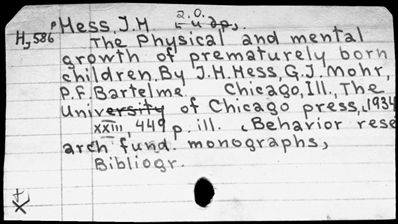 Hess, J.H. 2.0.
H, 586 The Physical and mental
growth of prematurely born
children. By J.H. Hess, G.J. Mohr,
P.F. Bartelme. Chicago, Ill., The
University of Chicago press, 1934
XXIII, 449 p. ill. (Behavior rese
arch fund. monographs,
Bibliogr.